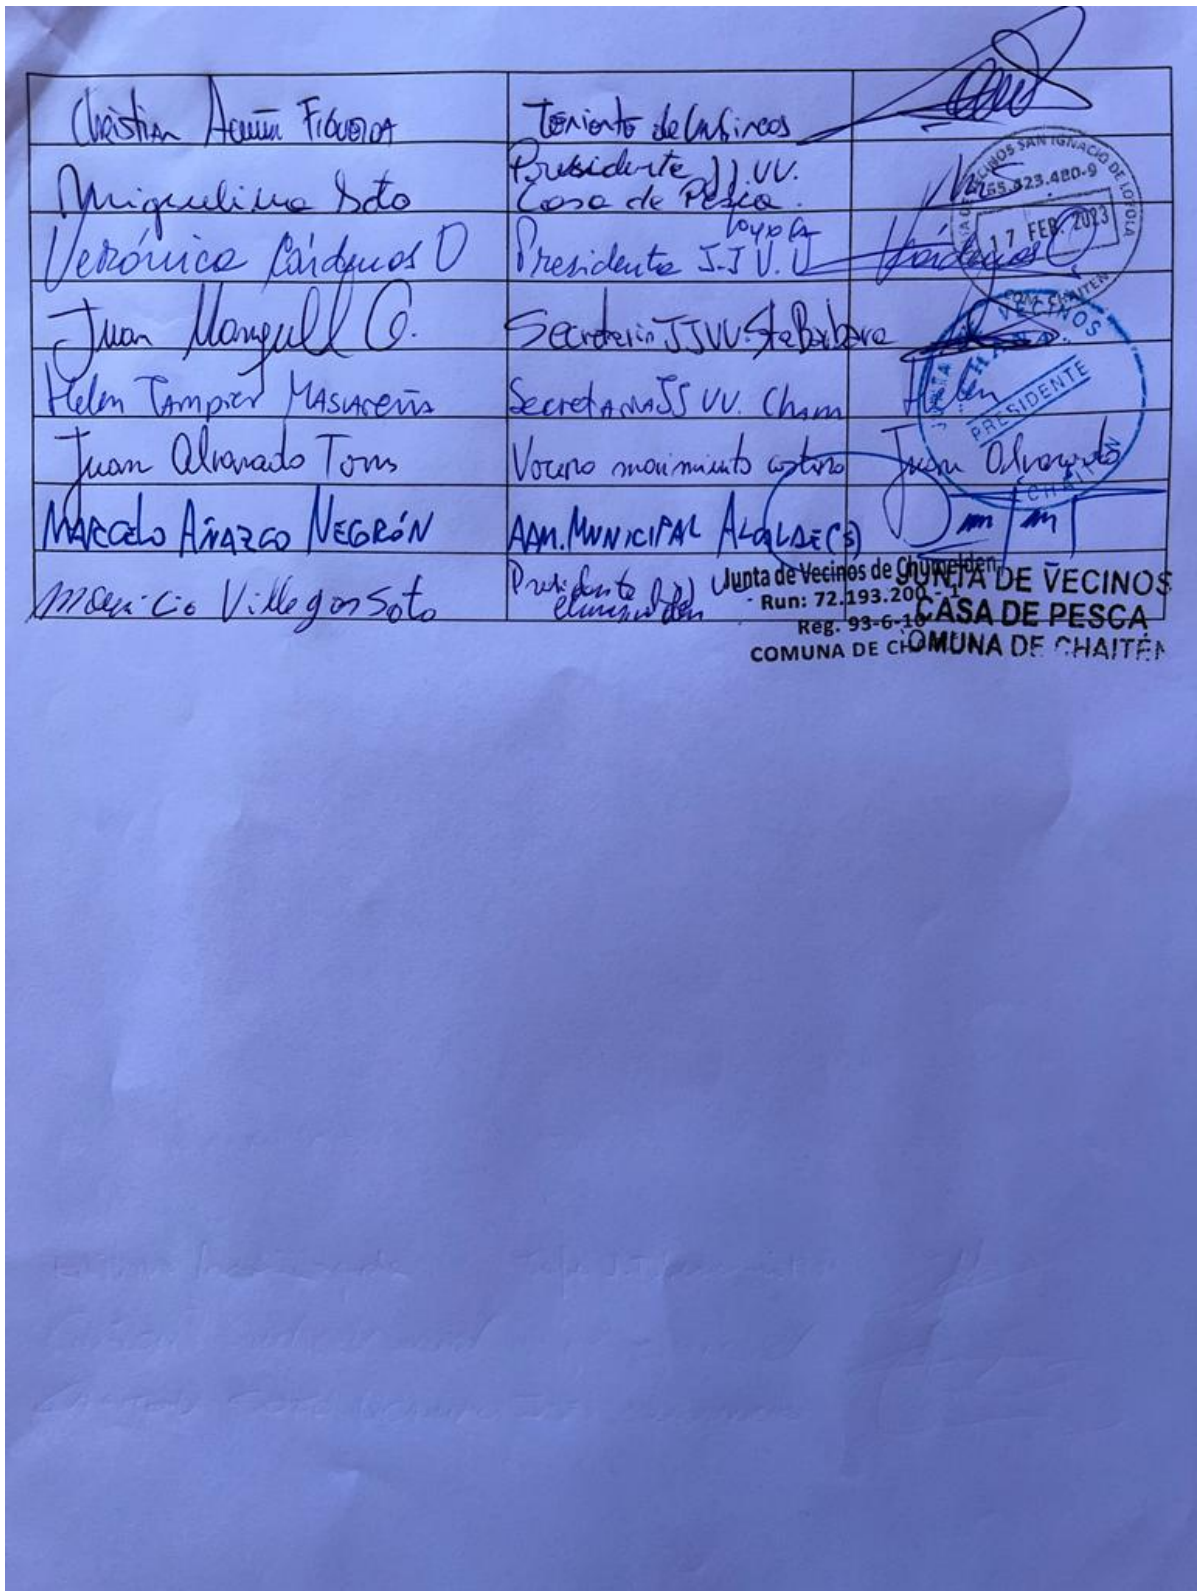 Christian Acuña FIGUEROA Teniente de Carabineros
Miguelina Soto Presidenta JJ.VV. Casa de Pesca.
Verónica Cárdenas O Presidenta J.J V.V Loyola Cárdenas O
Juan Mangull O. Secretario JJVV. Sta Barbara
Helen Tampier MASCAREÑA Secretaria JJ VV. Chana Helen
Juan Alvarado Torres Vocero movimiento costero Juan Alvarado
MARCELO AÑAZCO NEGRÓN ADM. MUNICIPAL ALCALDE(S)
Mauricio Villegas Soto Presidente JJ V Chumelden
JUNTA DE VECINOS SAN IGNACIO DE LOYOLA
65.423.480-9
17 FEB. 2023
COM. CHAITEN
JUNTA VECINOS
CHANA.
PRESIDENTE
CHAITÉN
Junta de Vecinos de Chumelden
Run: 72.193.200 - 1
Reg. 93-6-10
COMUNA DE
JUNTA DE VECINOS
CASA DE PESCA
COMUNA DE CHAITÉN